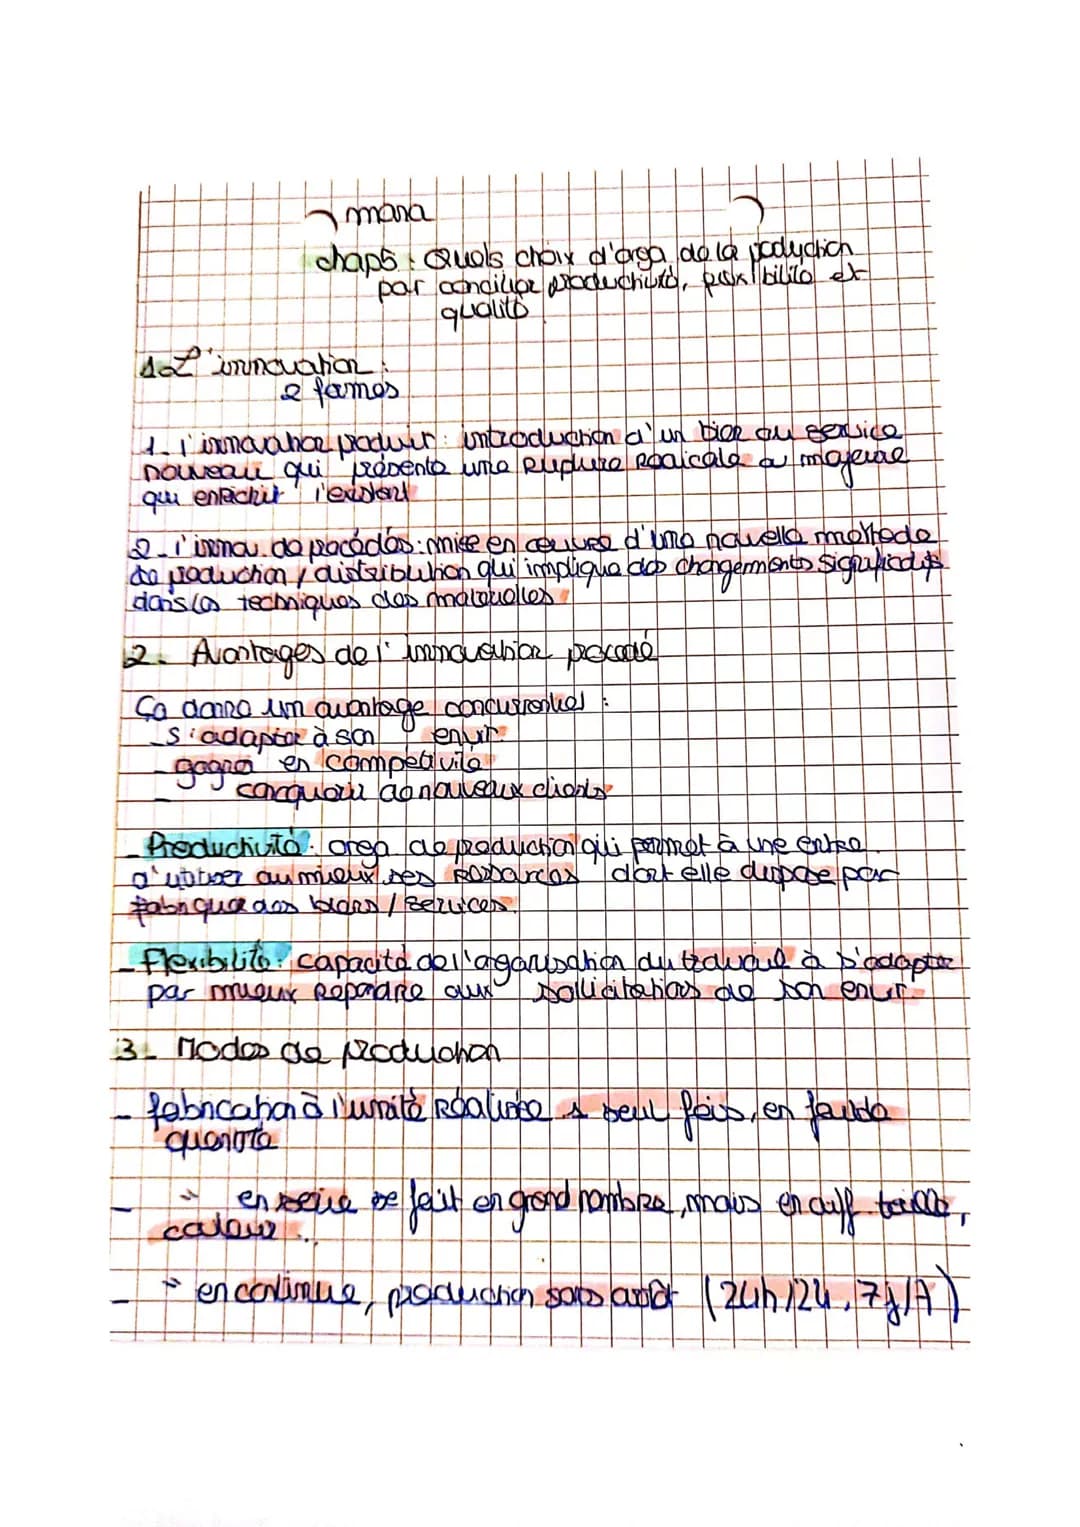 mana
chap5 : Quels choix d'orga de la production
par concilier productivité, flexibilité et
qualité
1. L'innovation :
2 formes
1. l'innovation produit : introduction d'un bien ou service
nouveau qui présente une rupture radicale ou majeure
qui enrichit l'existant
2. l'innov. de procédés : mise en œuvre d'une nouvelle méthode
de production / distribution qui implique des changements significatifs
dans les techniques des matérielles
2. Avantages de l'innovation procédé
Ça donne un avantage concurrentiel :
- s'adapter à son envir.
- gagner en compétivité
- conquérir de nouveaux clients
- Productivité : orga de production qui permet à une entre.
d'utiliser au mieux ses ressources dont elle dispose par
fabriquer des biens / services.
- Flexibilité : capacité de l'organisation du travail à s'adapter
par mieux repondre aux sollicitations de son envir.
3. Modes de production
- fabrication à l'unité réalisée 1 seul fois, en faible
quantité
- " en série se fait en grand nombre, mais en diff. taille,
couleur...
- " en continue, production sans arrêt (24h/24, 7j/7)